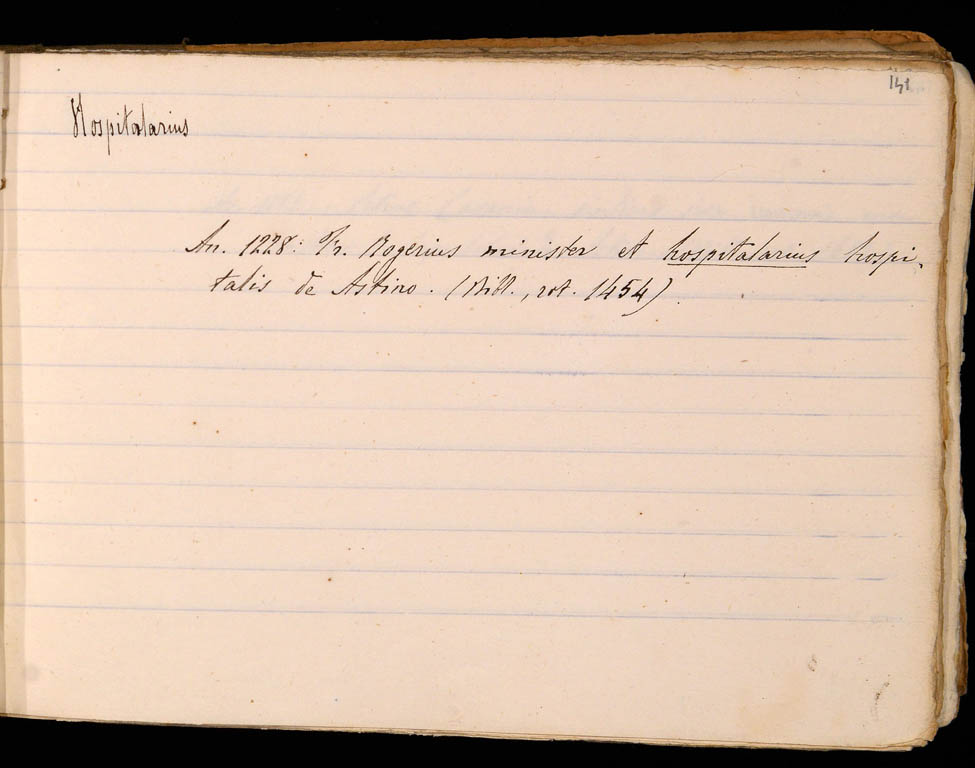 141
Hospitalarius
An. 1228: Fr. Rogerius minister et hospitalarius hospi-
talis de Astino. (Bibl., rot. 1454).